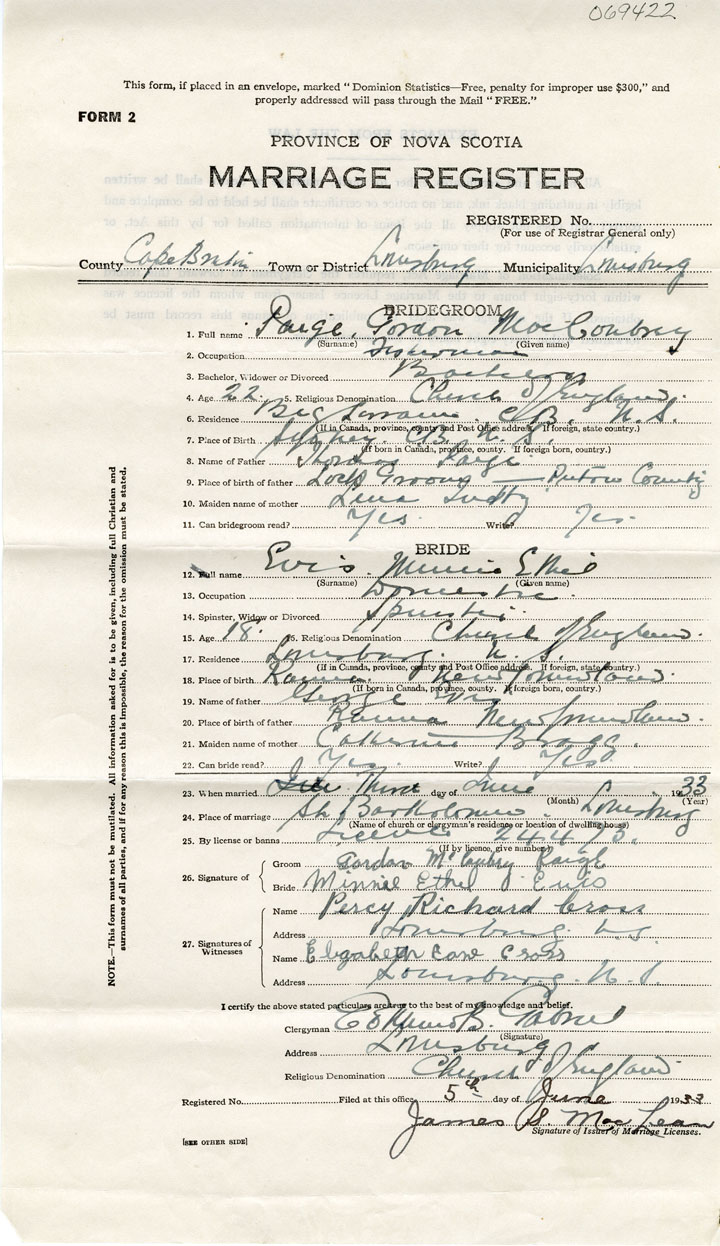 069422
This form, if placed in an envelope, marked "Dominion Statistics—Free, penalty for improper use $300," and
properly addressed will pass through the Mail "FREE."
FORM 2
PROVINCE OF NOVA SCOTIA
MARRIAGE REGISTER
REGISTERED No.
(For use of Registrar General only)
County Cape Breton Town or District Louisburg Municipality Louisburg
BRIDEGROOM
1. Full name Paige, Gordon MacCoubrey
(Surname) (Given name)
2. Occupation Fisherman
3. Bachelor, Widower or Divorced Bachelor
4. Age 22. 5. Religious Denomination Church of England.
6. Residence Big Lorraine C.B. N.S.
(If in Canada, province, county and Post Office address. If foreign, state country.)
7. Place of Birth Sydney. C.B. N.S.
(If born in Canada, province, county. If foreign born, country.)
8. Name of Father Paige
9. Place of birth of father Pictou County
10. Maiden name of mother Lena
11. Can bridegroom read? Yes. Write? Yes.
BRIDE
12. Full name Evis. Minnie Ethel
(Surname) (Given name)
13. Occupation Domestic.
14. Spinster, Widow or Divorced Spinster.
15. Age 18. 16. Religious Denomination Church of England.
17. Residence Louisburg. N.S.
(If in Canada, province, county and Post Office address. If foreign, state country.)
18. Place of birth Ramea Newfoundland.
(If born in Canada, province, county. If foreign born, country.)
19. Name of father George Evis
20. Place of birth of father Ramea Newfoundland.
21. Maiden name of mother Catherine Bragg.
22. Can bride read? Yes. Write? Yes.
23. When married Third day of June 1933
(Month) (Year)
24. Place of marriage St. Bartholomew Louisburg
(Name of church or clergyman's residence or location of dwelling house)
25. By license or banns Licence
(If by licence, give number)
26. Signature of Groom Gordon McCoubry Paige
Bride Minnie Ethel Evis
27. Signatures of Witnesses
Name Percy Richard Cross
Address Louisburg N.S.
Name Elizabeth Cross
Address Louisburg. N.S.
I certify the above stated particulars are true to the best of my knowledge and belief.
Clergyman B. Gabriel
(Signature)
Address Louisburg
Religious Denomination Church of England
Registered No. Filed at this office 5th day of June 1933
James S. MacLean
Signature of Issuer of Marriage Licenses.
[SEE OTHER SIDE]
NOTE.—This form must not be mutilated. All information asked for is to be given, including full Christian and
surnames of all parties, and if for any reason this is impossible, the reason for the omission must be stated.